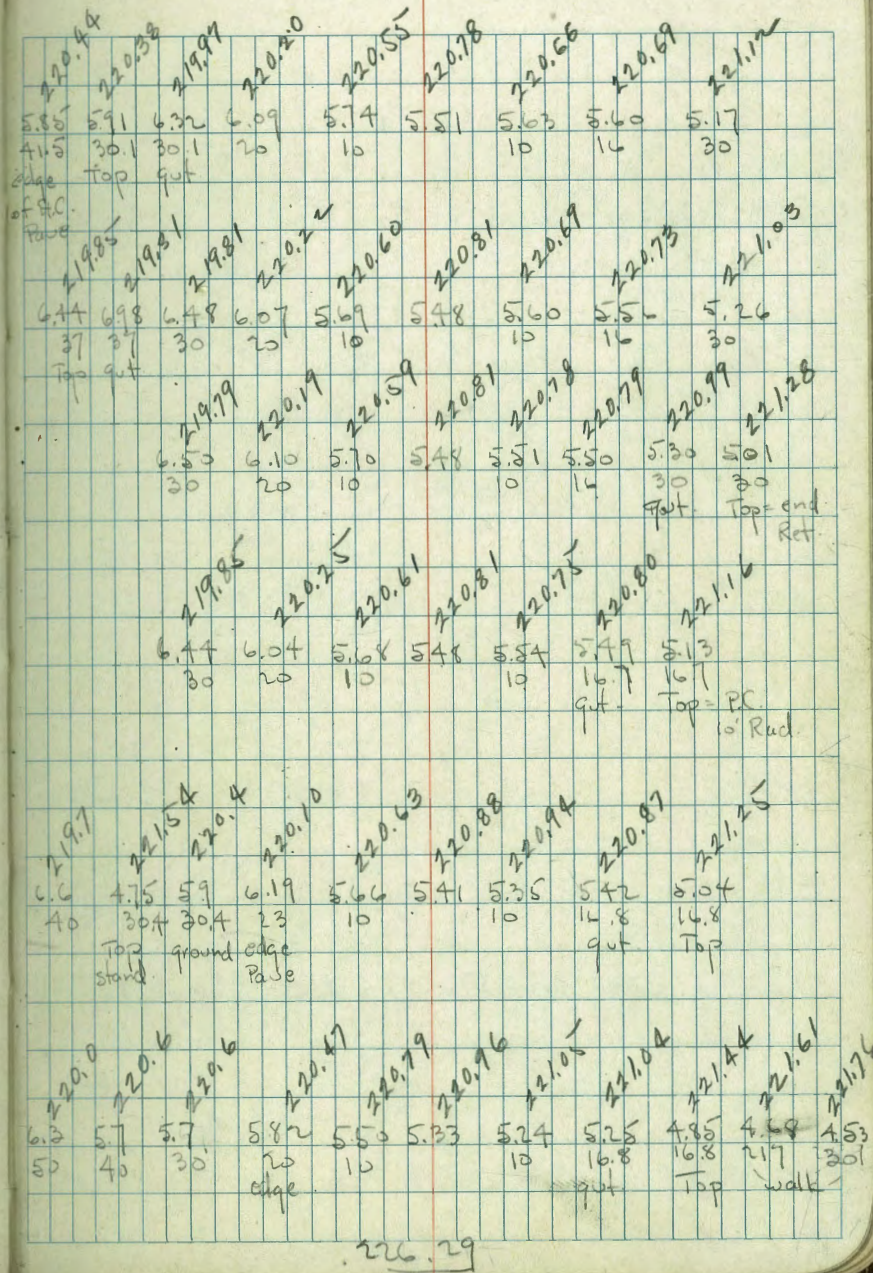 220.44 220.38 219.97 220.20 220.55 220.78 220.66 220.69 221.12
5.85 5.91 6.32 6.09 5.74 5.51 5.63 5.60 5.17
41.5 30.1 30.1 20 10 10 16 30
edge Top gut
of A.C.
Pave
219.85 219.31 219.81 220.22 220.60 220.81 220.69 220.73 221.03
6.44 6.98 6.48 6.07 5.69 5.48 5.60 5.56 5.26
37 37 30 20 10 10 16 30
Top gut
219.79 220.19 220.59 220.81 220.78 220.79 220.99 221.28
6.50 6.10 5.70 5.48 5.51 5.50 5.30 5.01
30 20 10 10 16 30 30
gut Top = end
Ret.
219.85 220.25 220.61 220.81 220.75 220.80 221.16
6.44 6.04 5.68 5.48 5.54 5.49 5.13
30 20 10 10 16.7 16.7
gut Top = P.C.
10' Rad.
219.7 221.54 220.4 220.10 220.63 220.88 220.94 220.87 221.25
6.6 4.75 5.9 6.19 5.66 5.41 5.35 5.42 5.04
40 30.4 30.4 23 10 10 16.8 16.8
Top ground edge gut Top
stand. Pave
220.0 220.6 220.6 220.47 220.79 220.96 221.05 221.04 221.44 221.61 221.76
6.3 5.7 5.7 5.82 5.50 5.33 5.24 5.25 4.85 4.68 4.53
50 40 30 20 10 10 16.8 16.8 21.7 30.1
edge gut Top walk
226.29